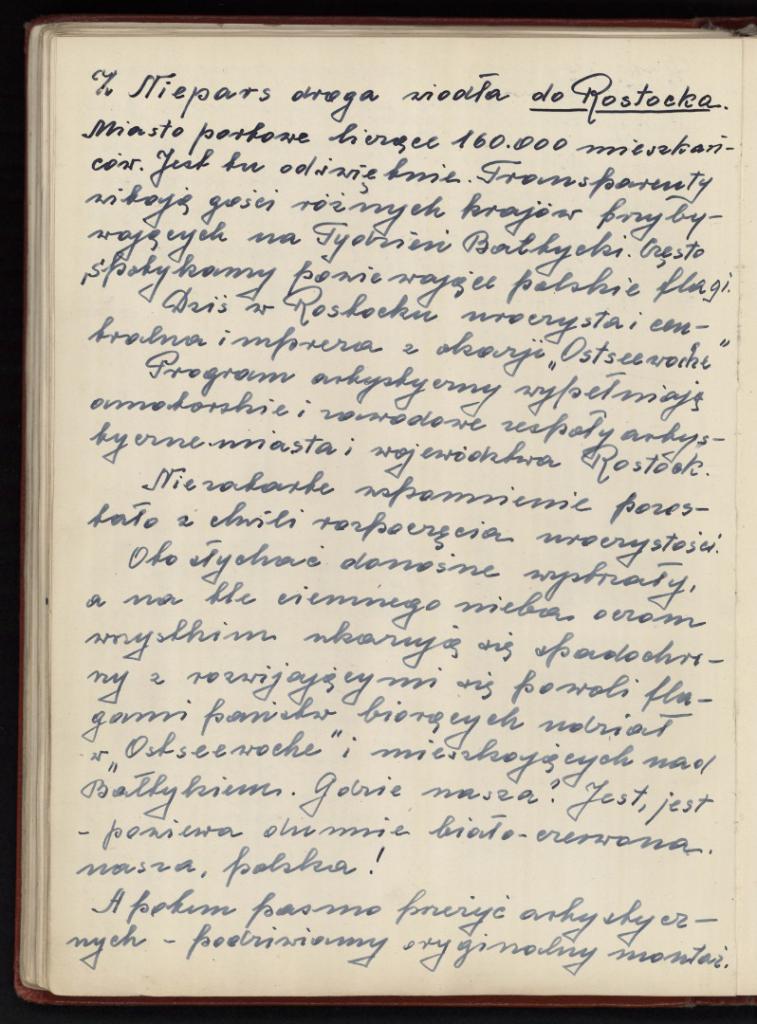 Z Niepars droga wiodła do Rostocka.
Miasto portowe liczące 160.000 mieszkań-
ców. Jest tu odświętnie. Transparenty
witają gości różnych krajów przyby-
wających na Tydzień Bałtycki. Często
spotykamy powiewające polskie flagi.
Dziś w Rostocku uroczysta i cen-
tralna impreza z okazji „Ostseewoche"
Program artystyczny wypełniają
amatorskie i zawodowe zespoły artys-
tyczne miasta i województwa Rostock.
Niezatarte wspomnienie pozos-
tało z chwili rozpoczęcia uroczystości.
Oto słychać donośne wystrzały,
a na tle ciemnego nieba oczom
wszystkim ukazują się spadochro-
ny z rozwijającymi się powoli fla-
gami państw biorących udział
w „Ostseewoche" i mieszkających nad
Bałtykiem. Gdzie nasza? Jest, jest
- powiewa dumnie biało-czerwona.
nasza, polska!
A potem pasmo przeżyć artystycz-
nych - podziwiamy oryginalny montaż.